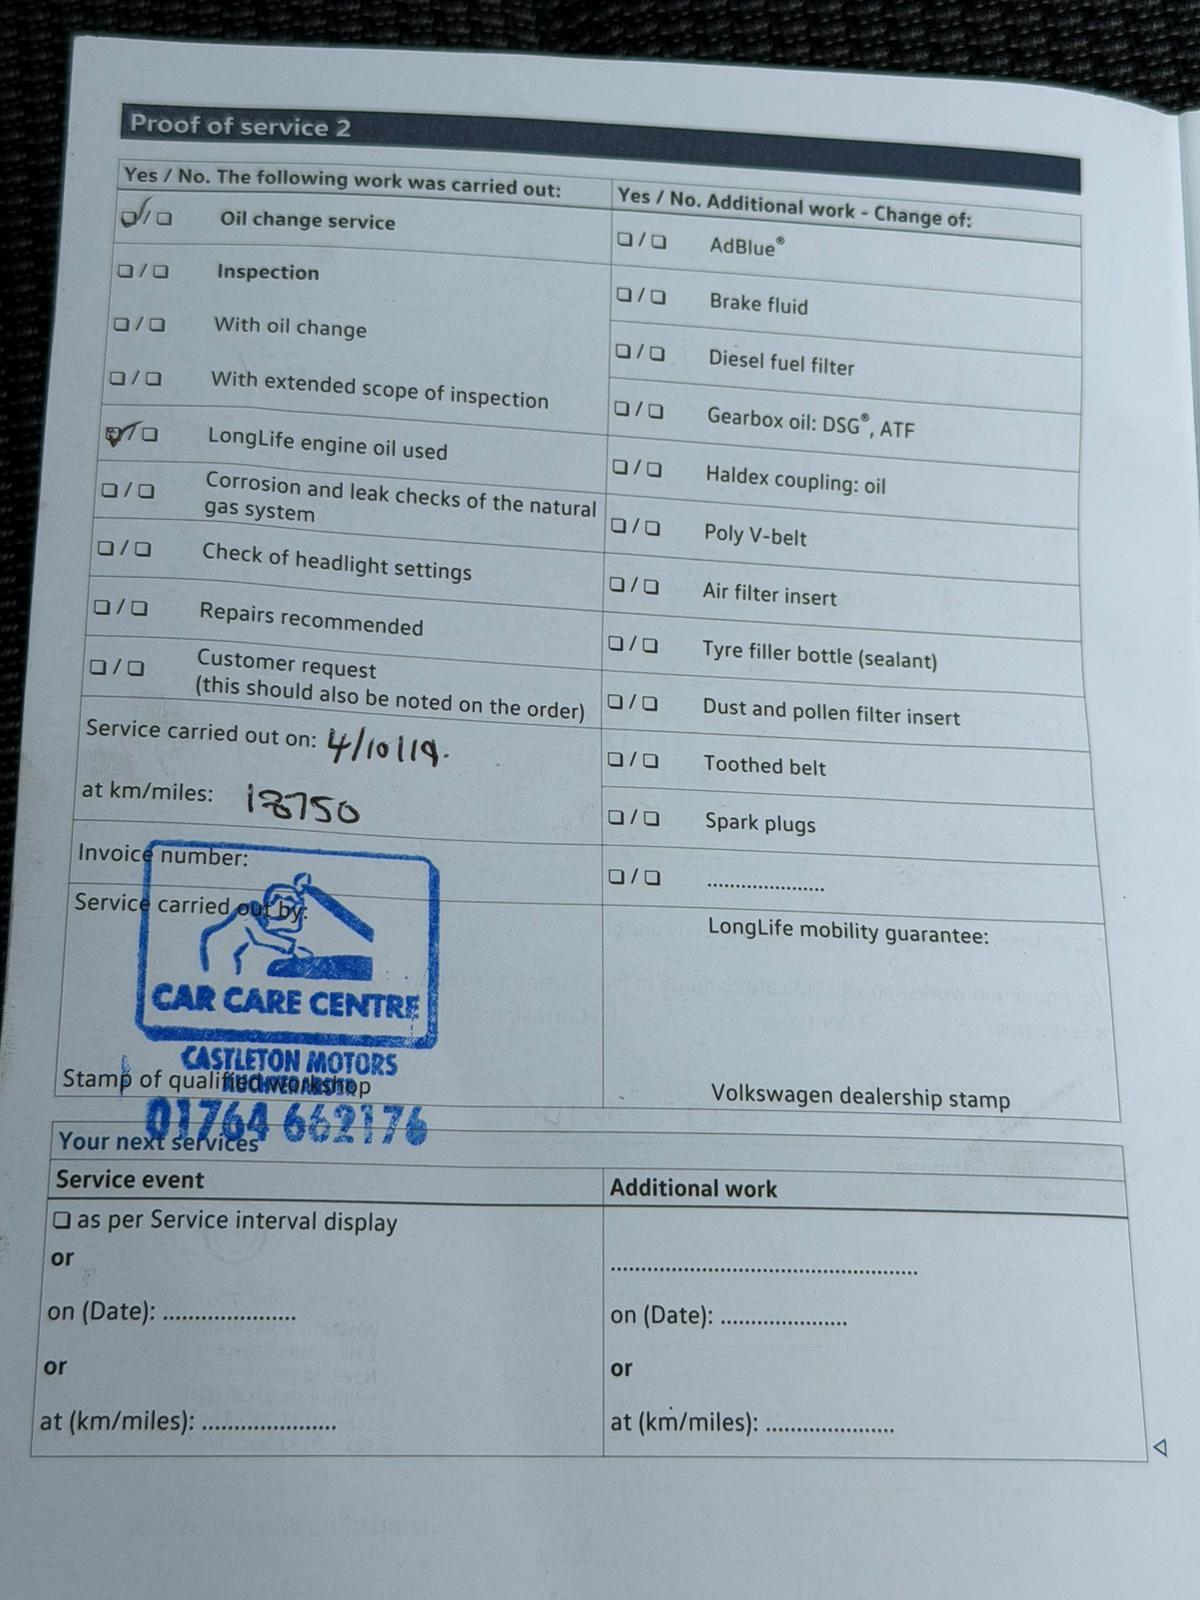 Proof of service 2
Yes / No. The following work was carried out:
Oil change service
Inspection
With oil change
With extended scope of inspection
LongLife engine oil used
Corrosion and leak checks of the natural
gas system
Check of headlight settings
Repairs recommended
Customer request
(this should also be noted on the order)
Service carried out on: 4/10/19.
at km/miles: 18750
Invoice number:
Service carried out by:
CAR CARE CENTRE
CASTLETON MOTORS
Stamp of qualified workshop
01764 662176
Yes / No. Additional work - Change of:
AdBlue®
Brake fluid
Diesel fuel filter
Gearbox oil: DSG®, ATF
Haldex coupling: oil
Poly V-belt
Air filter insert
Tyre filler bottle (sealant)
Dust and pollen filter insert
Toothed belt
Spark plugs
.....................
LongLife mobility guarantee:
Volkswagen dealership stamp
Your next services
Service event
as per Service interval display
or
on (Date): .....................
or
at (km/miles): .....................
Additional work
.....................................................
on (Date): .....................
or
at (km/miles): .....................